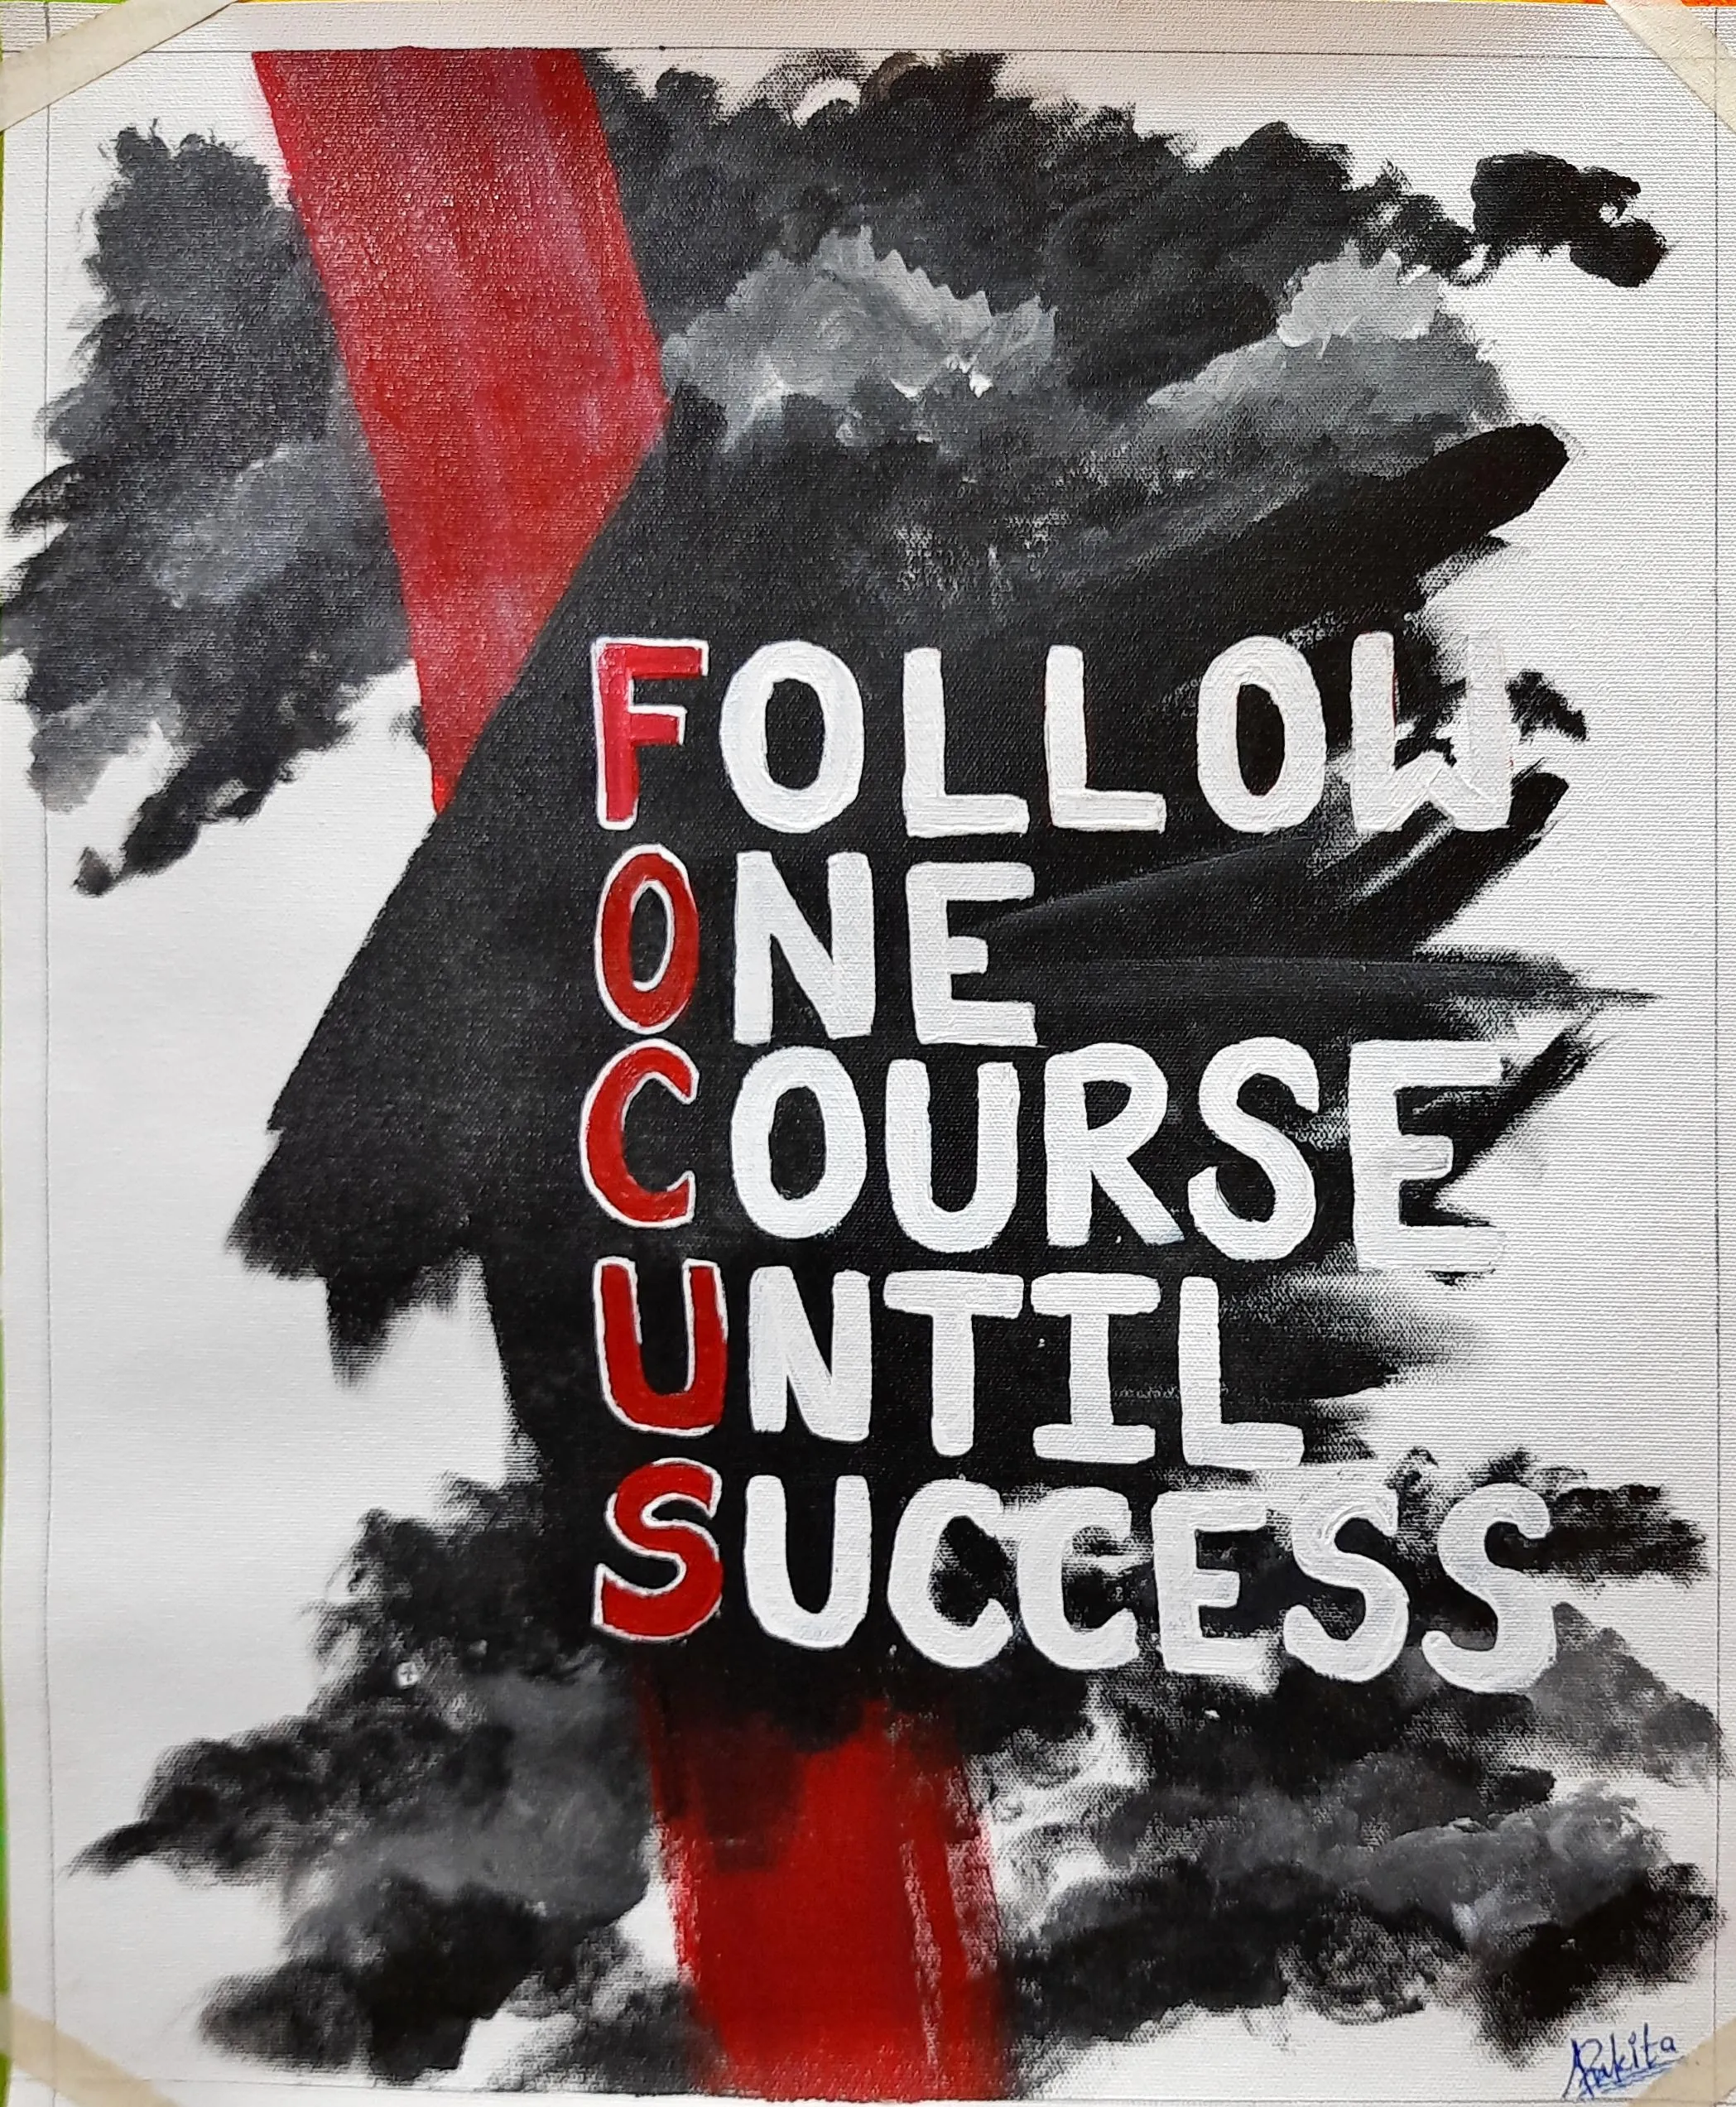 FOLLOW
ONE
COURSE
UNTIL
SUCCESS